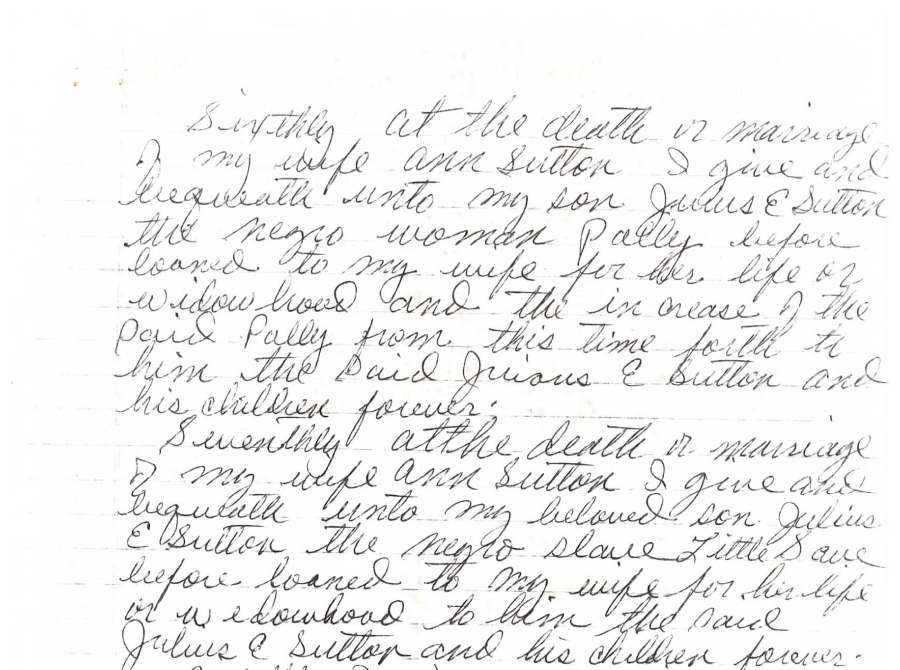 Sixthly at the death or marriage
of my wife Ann Sutton I give and
bequeath unto my son Julius E Sutton
the negro woman Pally before
loaned to my wife for her life or
widowhood and the increase of the
said Pally from this time forth to
him the said Julius E Sutton and
his children forever.
Seventhly at the death or marriage
of my wife Ann Sutton I give and
bequeath unto my beloved son Julius
E Sutton the negro slave Little
before loaned to my wife for her life
or widowhood to him the said
Julius E Sutton and his children forever.